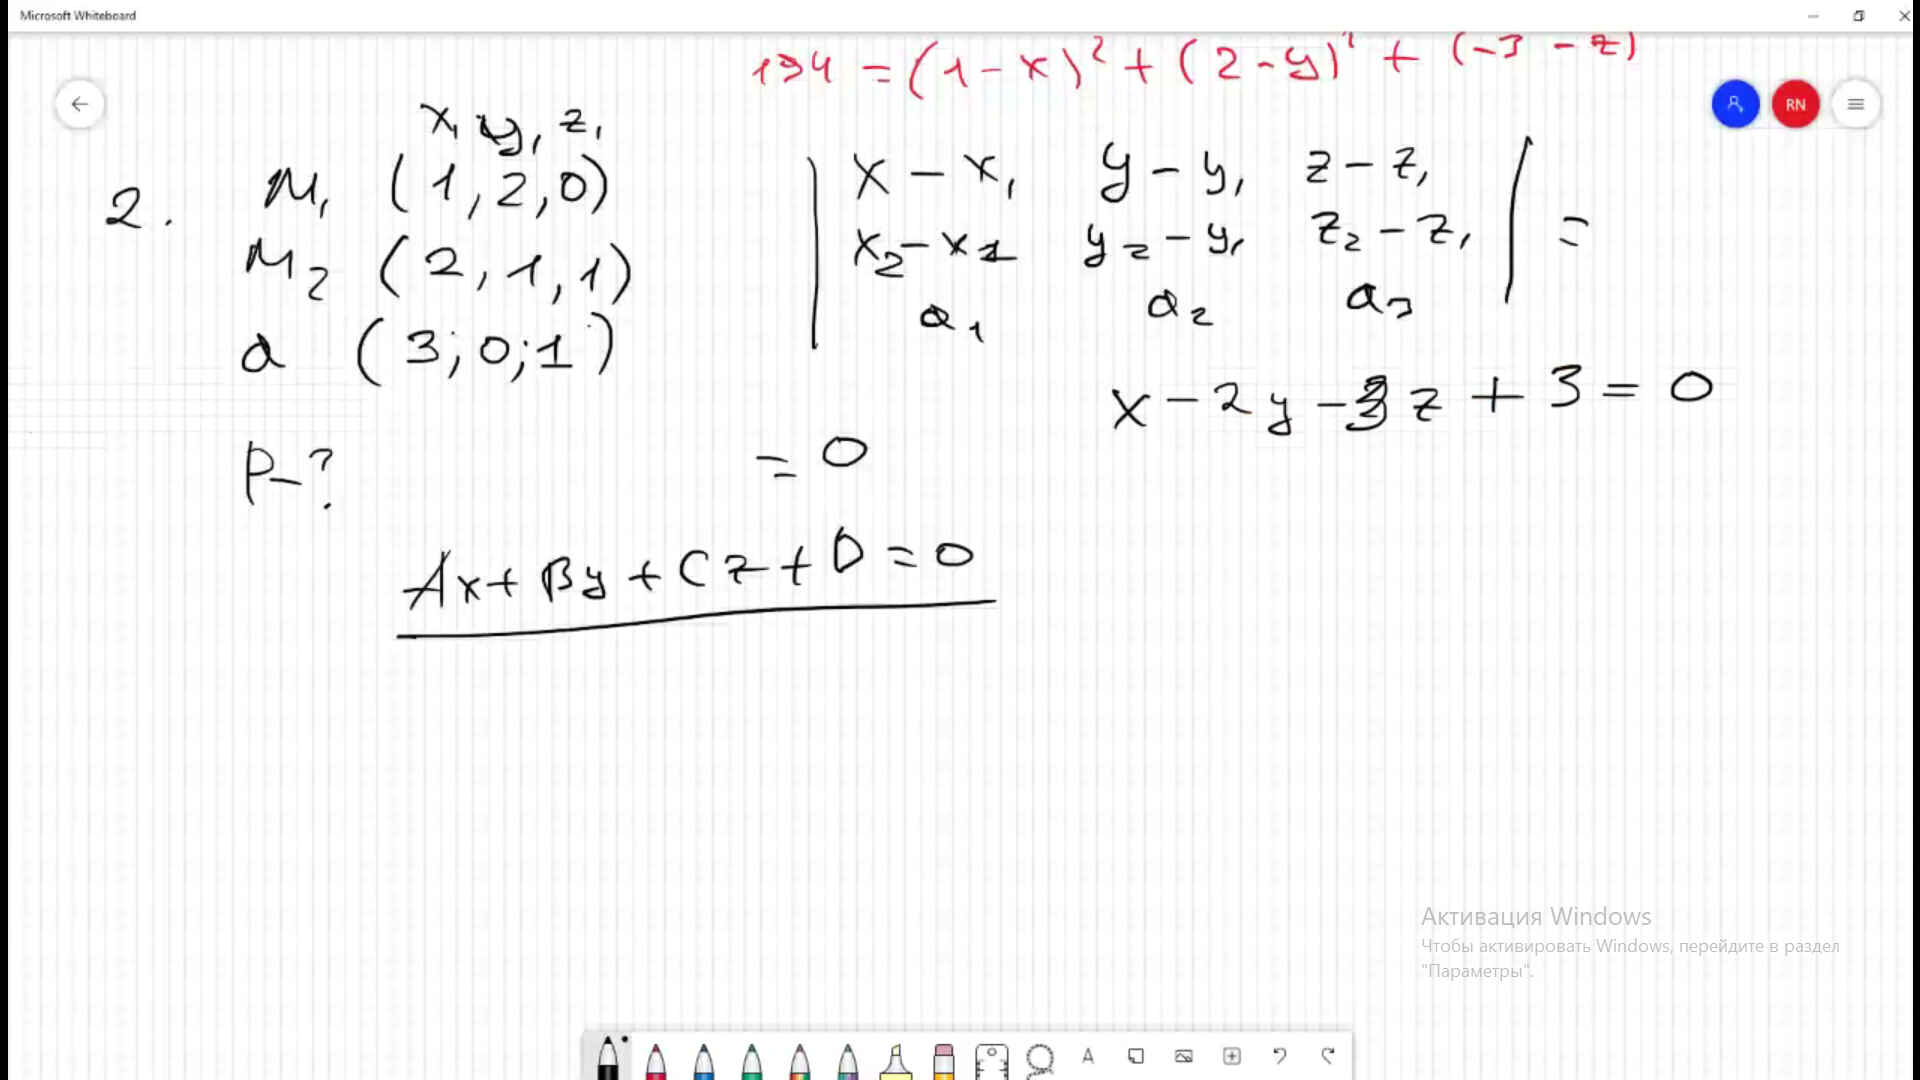 Microsoft Whiteboard
194 = (1 - x)² + (2 - y)² + (-3 - z)
RN
x₁ y₁ z₁
2. M₁ (1, 2, 0)
M₂ (2, 1, 1)
a (3; 0; 1)
P - ?
| x - x₁ y - y₁ z - z₁ |
x₂ - x₁ y₂ - y₁ z₂ - z₁ =
a₁ a₂ a₃
= 0
x - 2y - 3z + 3 = 0
Ax + By + Cz + D = 0
Активация Windows
Чтобы активировать Windows, перейдите в раздел
"Параметры".